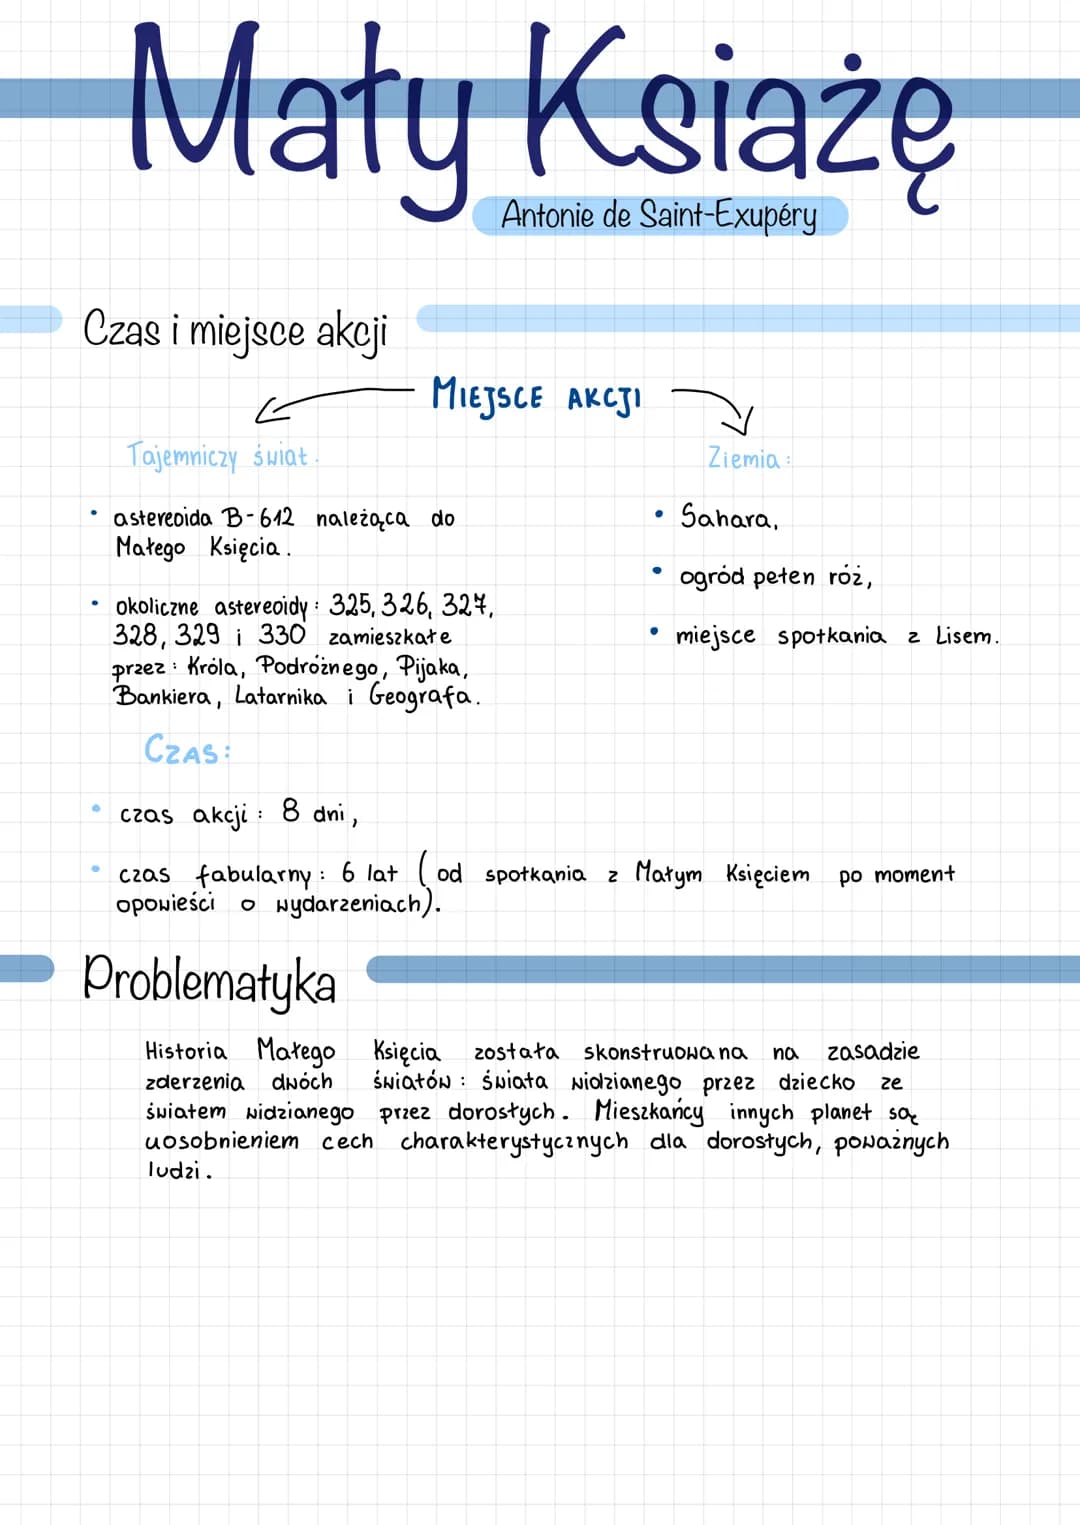 Mały Książę
Antonie de Saint-Exupéry
Czas i miejsce akcji
MIEJSCE AKCJI
Tajemniczy świat:
• astereoida B-612 należąca do
Małego Księcia.
• okoliczne astereoidy: 325, 326, 327,
328, 329 i 330 zamieszkałe
przez: Króla, Podróżnego, Pijaka,
Bankiera, Latarnika i Geografa.
Ziemia:
• Sahara,
• ogród pełen róż,
• miejsce spotkania z Lisem.
CZAS:
• czas akcji: 8 dni,
• czas fabularny: 6 lat (od spotkania z Małym Księciem po moment
opowieści o wydarzeniach).
Problematyka
Historia Małego Księcia została skonstruowana na zasadzie
zderzenia dwóch światów: świata widzianego przez dziecko ze
światem widzianego przez dorosłych. Mieszkańcy innych planet są
uosobnieniem cech charakterystycznych dla dorosłych, poważnych
ludzi.